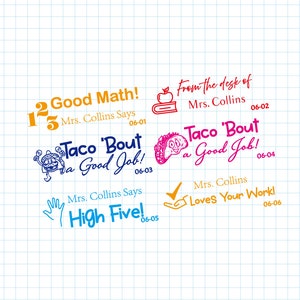 123 Good Math!
Mrs. Collins Says
06-01
From the desk of
Mrs. Collins
06-02
Taco 'Bout
a Good Job!
06-03
Taco 'Bout
a Good Job!
06-04
Mrs. Collins Says
High Five!
06-05
Mrs. Collins
Loves Your Work!
06-06